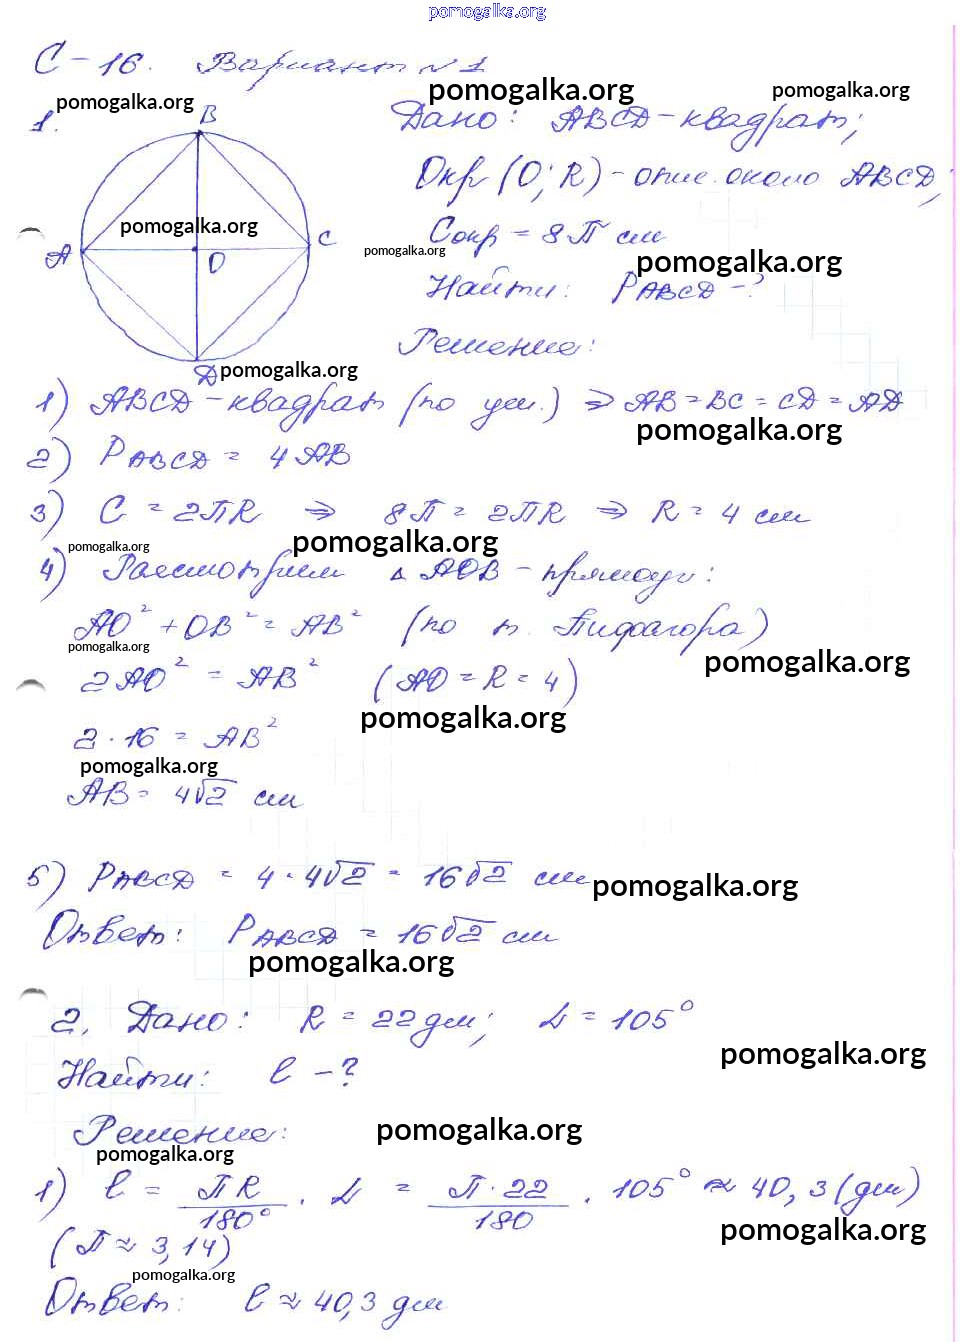 pomogalka.org
С-16. Вариант №1
pomogalka.org pomogalka.org pomogalka.org
1. B Дано: ABCD-квадрат;
Окр (O; R) - опис. около ABCD;
pomogalka.org
Cокр = 8π см
A O C pomogalka.org pomogalka.org
Найти: PABCD - ?
Решение:
D pomogalka.org
1) ABCD-квадрат (по усл.) ⇒ AB = BC = CD = AD
pomogalka.org
2) PABCD = 4 AB
3) C = 2πR ⇒ 8π = 2πR ⇒ R = 4 см
pomogalka.org pomogalka.org
4) Рассмотрим Δ AOB - прямоуг:
AO² + OB² = AB² (по т. Пифагора)
pomogalka.org pomogalka.org
2 AO² = AB² (AO = R = 4)
pomogalka.org
2 · 16 = AB²
pomogalka.org
AB = 4√2 см
5) PABCD = 4 · 4√2 = 16√2 см
pomogalka.org
Ответ: PABCD = 16√2 см
pomogalka.org
2. Дано: R = 22 дм; α = 105°
pomogalka.org
Найти: l - ?
pomogalka.org
Решение:
pomogalka.org
1) l = πR/180° · α = π · 22/180 · 105° ≈ 40,3 (дм)
pomogalka.org
(π ≈ 3,14)
pomogalka.org
Ответ: l ≈ 40,3 дм